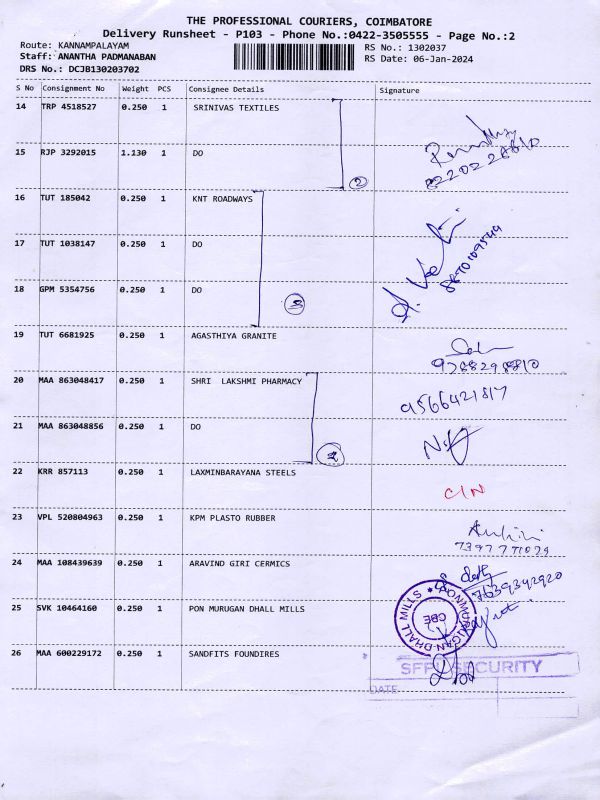 THE PROFESSIONAL COURIERS, COIMBATORE
Delivery Runsheet - P103 - Phone No.:0422-3505555 - Page No.:2
Route: KANNAMPALAYAM RS No.: 1302037
Staff: ANANTHA PADMANABAN RS Date: 06-Jan-2024
DRS No.: DCJB130203702
S No Consignment No Weight PCS Consignee Details Signature
14 TRP 4518527 0.250 1 SRINIVAS TEXTILES
15 RJP 3292015 1.130 1 DO
2
16 TUT 185042 0.250 1 KNT ROADWAYS
17 TUT 1038147 0.250 1 DO
18 GPM 5354756 0.250 1 DO
3
19 TUT 6681925 0.250 1 AGASTHIYA GRANITE
9788298810
20 MAA 863048417 0.250 1 SHRI LAKSHMI PHARMACY
9566421817
21 MAA 863048856 0.250 1 DO
2
22 KRR 857113 0.250 1 LAXMINBARAYANA STEELS
C/N
23 VPL 520804963 0.250 1 KPM PLASTO RUBBER
24 MAA 108439639 0.250 1 ARAVIND GIRI CERMICS
7639392920
25 SVK 10464160 0.250 1 PON MURUGAN DHALL MILLS
PONMURUGAN DHALL MILLS
CBE
26 MAA 600229172 0.250 1 SANDFITS FOUNDIRES
SFPL SECURITY
DATE